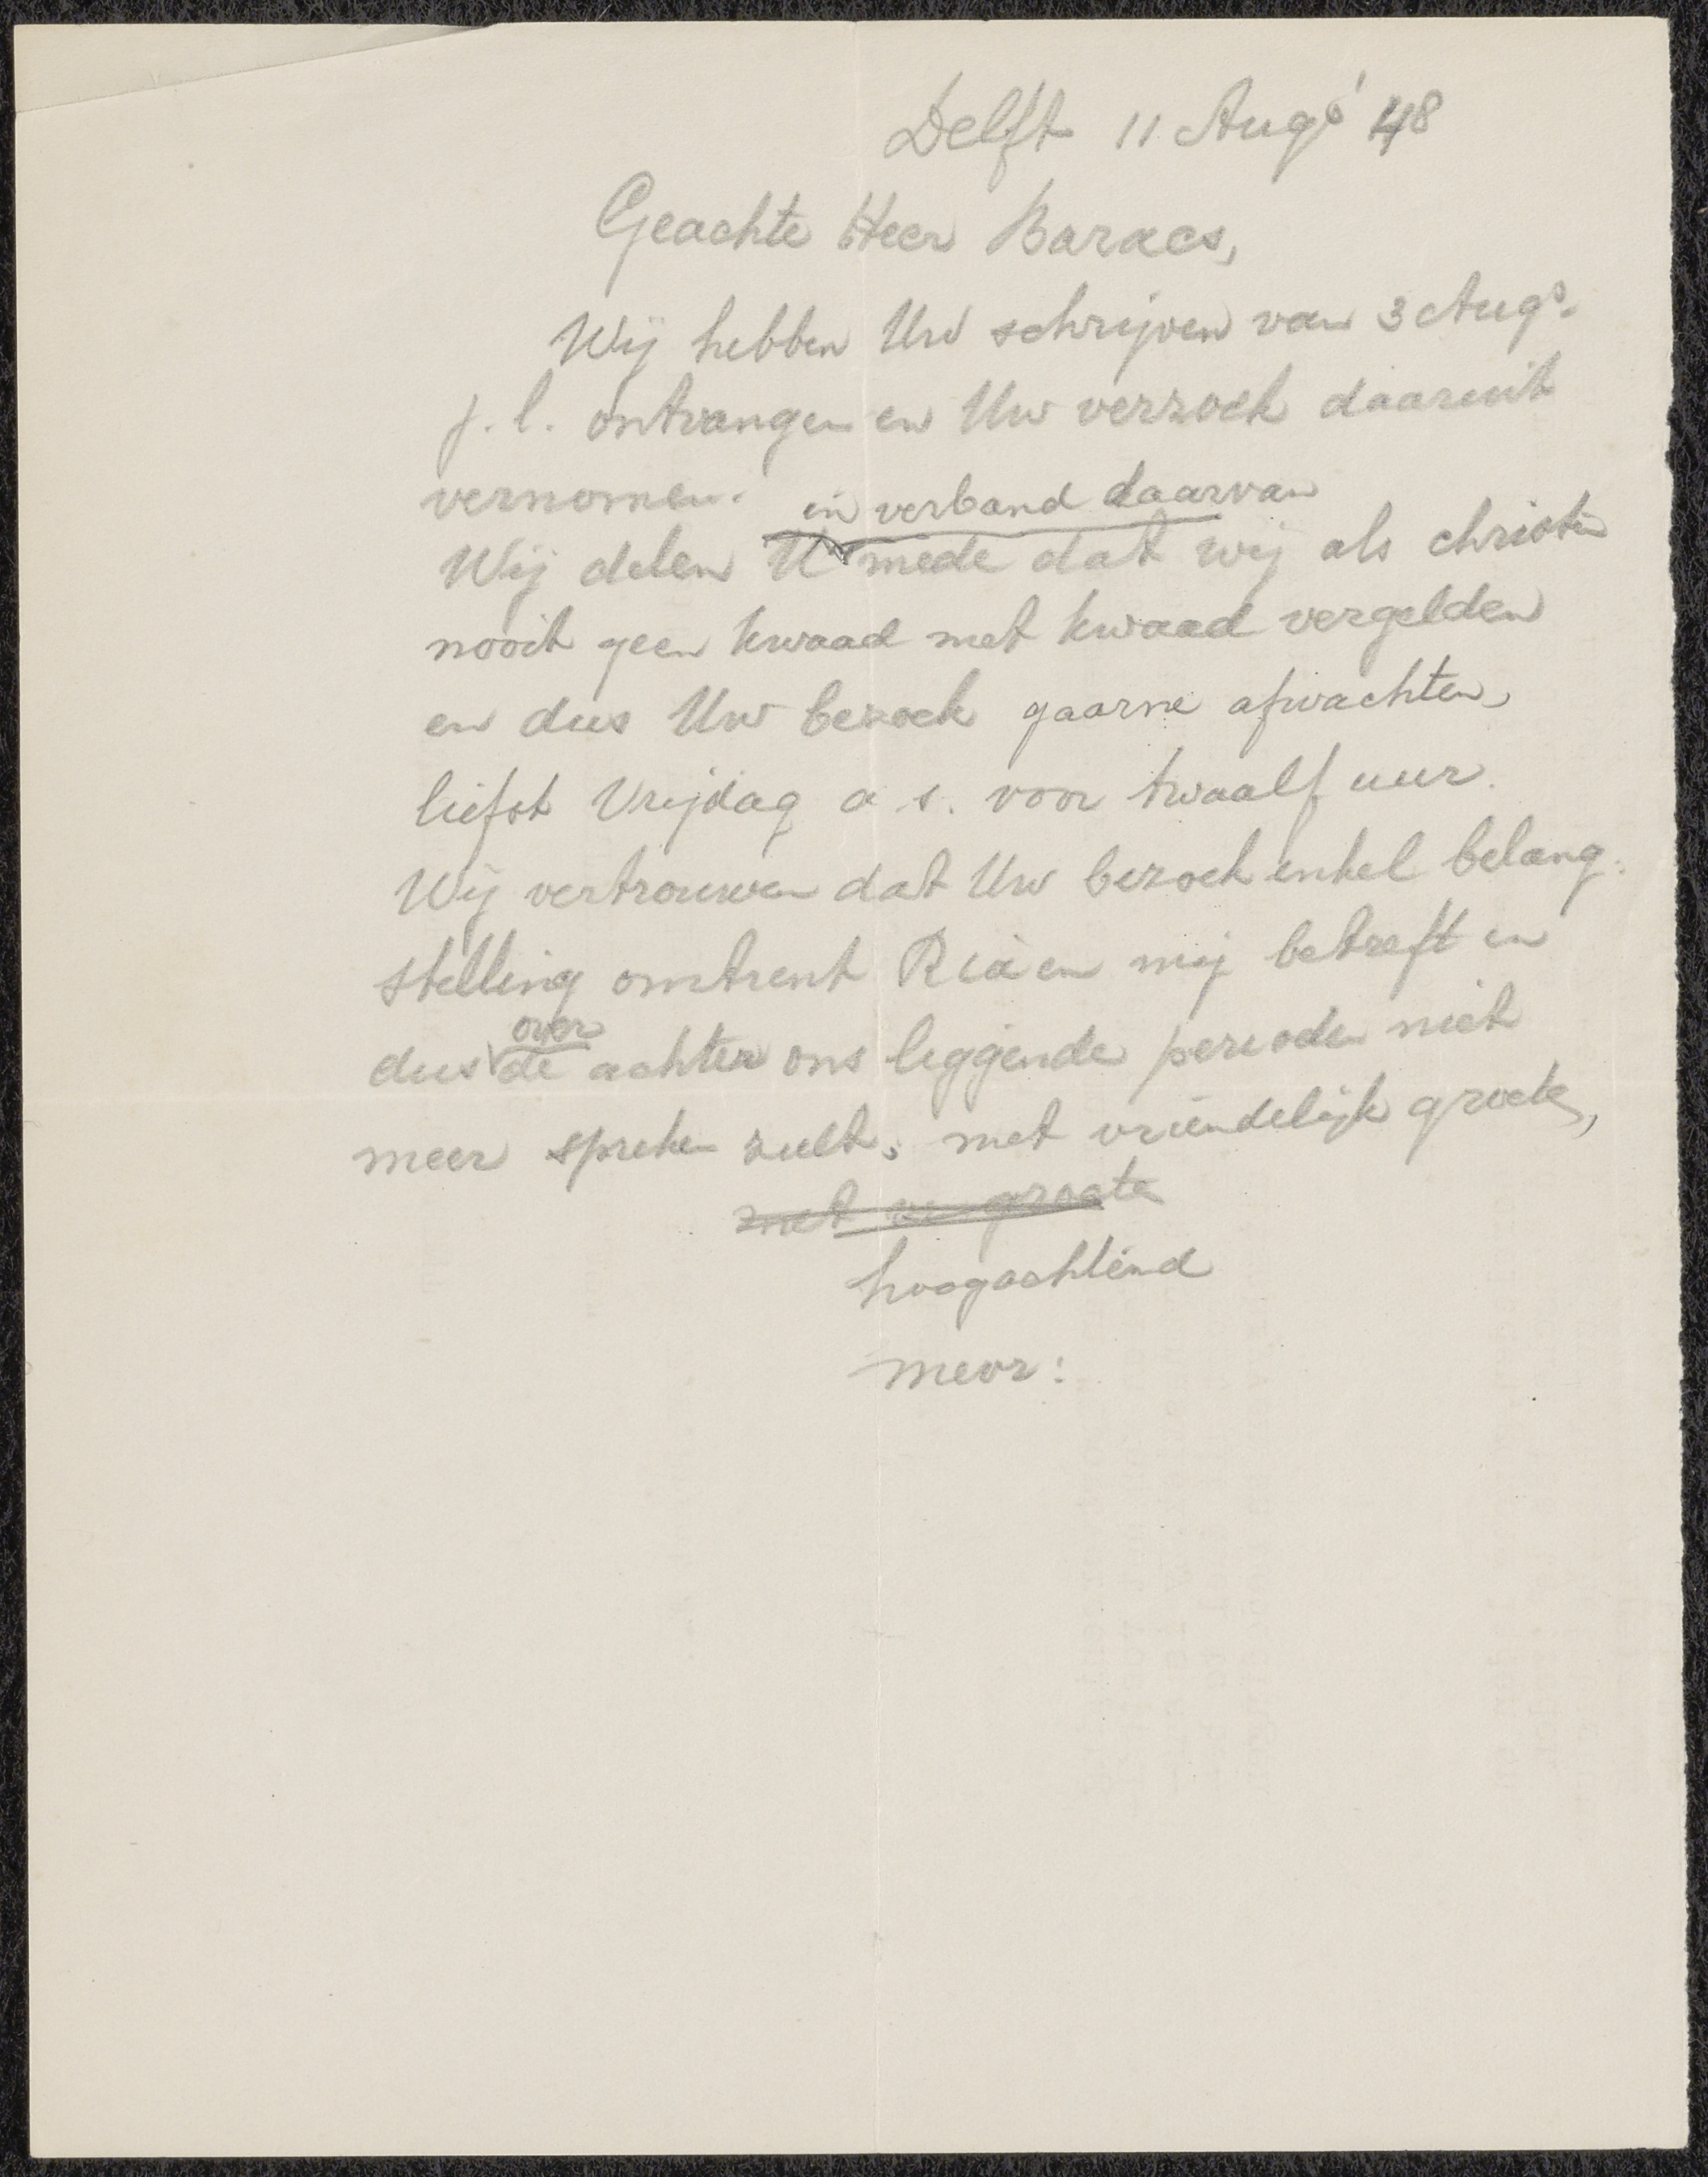 Delft 11 Augs '48
Geachte Heer Baracs,
Wij hebben Uw schrijven van 3 Augs.
j.l. ontvangen en Uw verzoek daaruit
vernomen.
in verband daarvan
Wij delen U mede dat wij als christen
nooit geen kwaad met kwaad vergelden
en dus Uw bezoek gaarne afwachten,
liefst Vrijdag a s. voor twaalf uur.
Wij vertrouwen dat Uw bezoek enkel belang-
stelling omtrent Ria en mij betreft en
over
dus de achter ons leggende perioden niet
meer spreken zult. met vriendelijk groete,
met vr groete
hoogachtend
mevr: